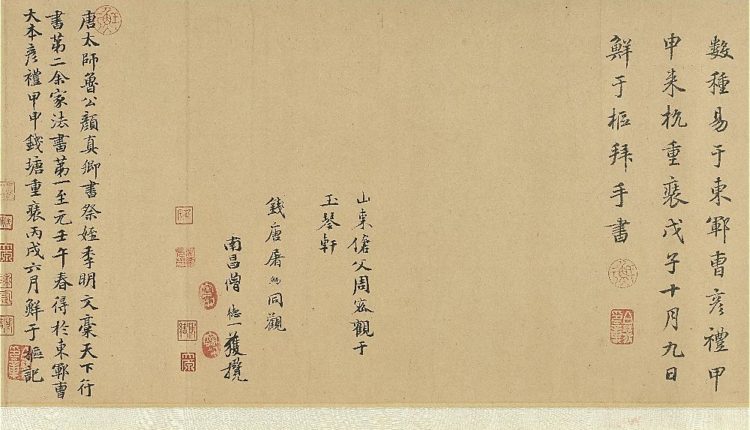 数種易于東鄆曹彦禮甲
申来杭重裝戊子十月九日
鮮于枢拜手書
山東傖父周密觀于
玉琴軒
錢唐屠 同觀
南昌僧德一獲攬
唐太師魯公顔真卿書祭姪季明文稾天下行
書第二余家法書第一至元壬午春得於東鄆曹
大本彦禮甲申錢塘重裝丙戌六月鮮于枢記